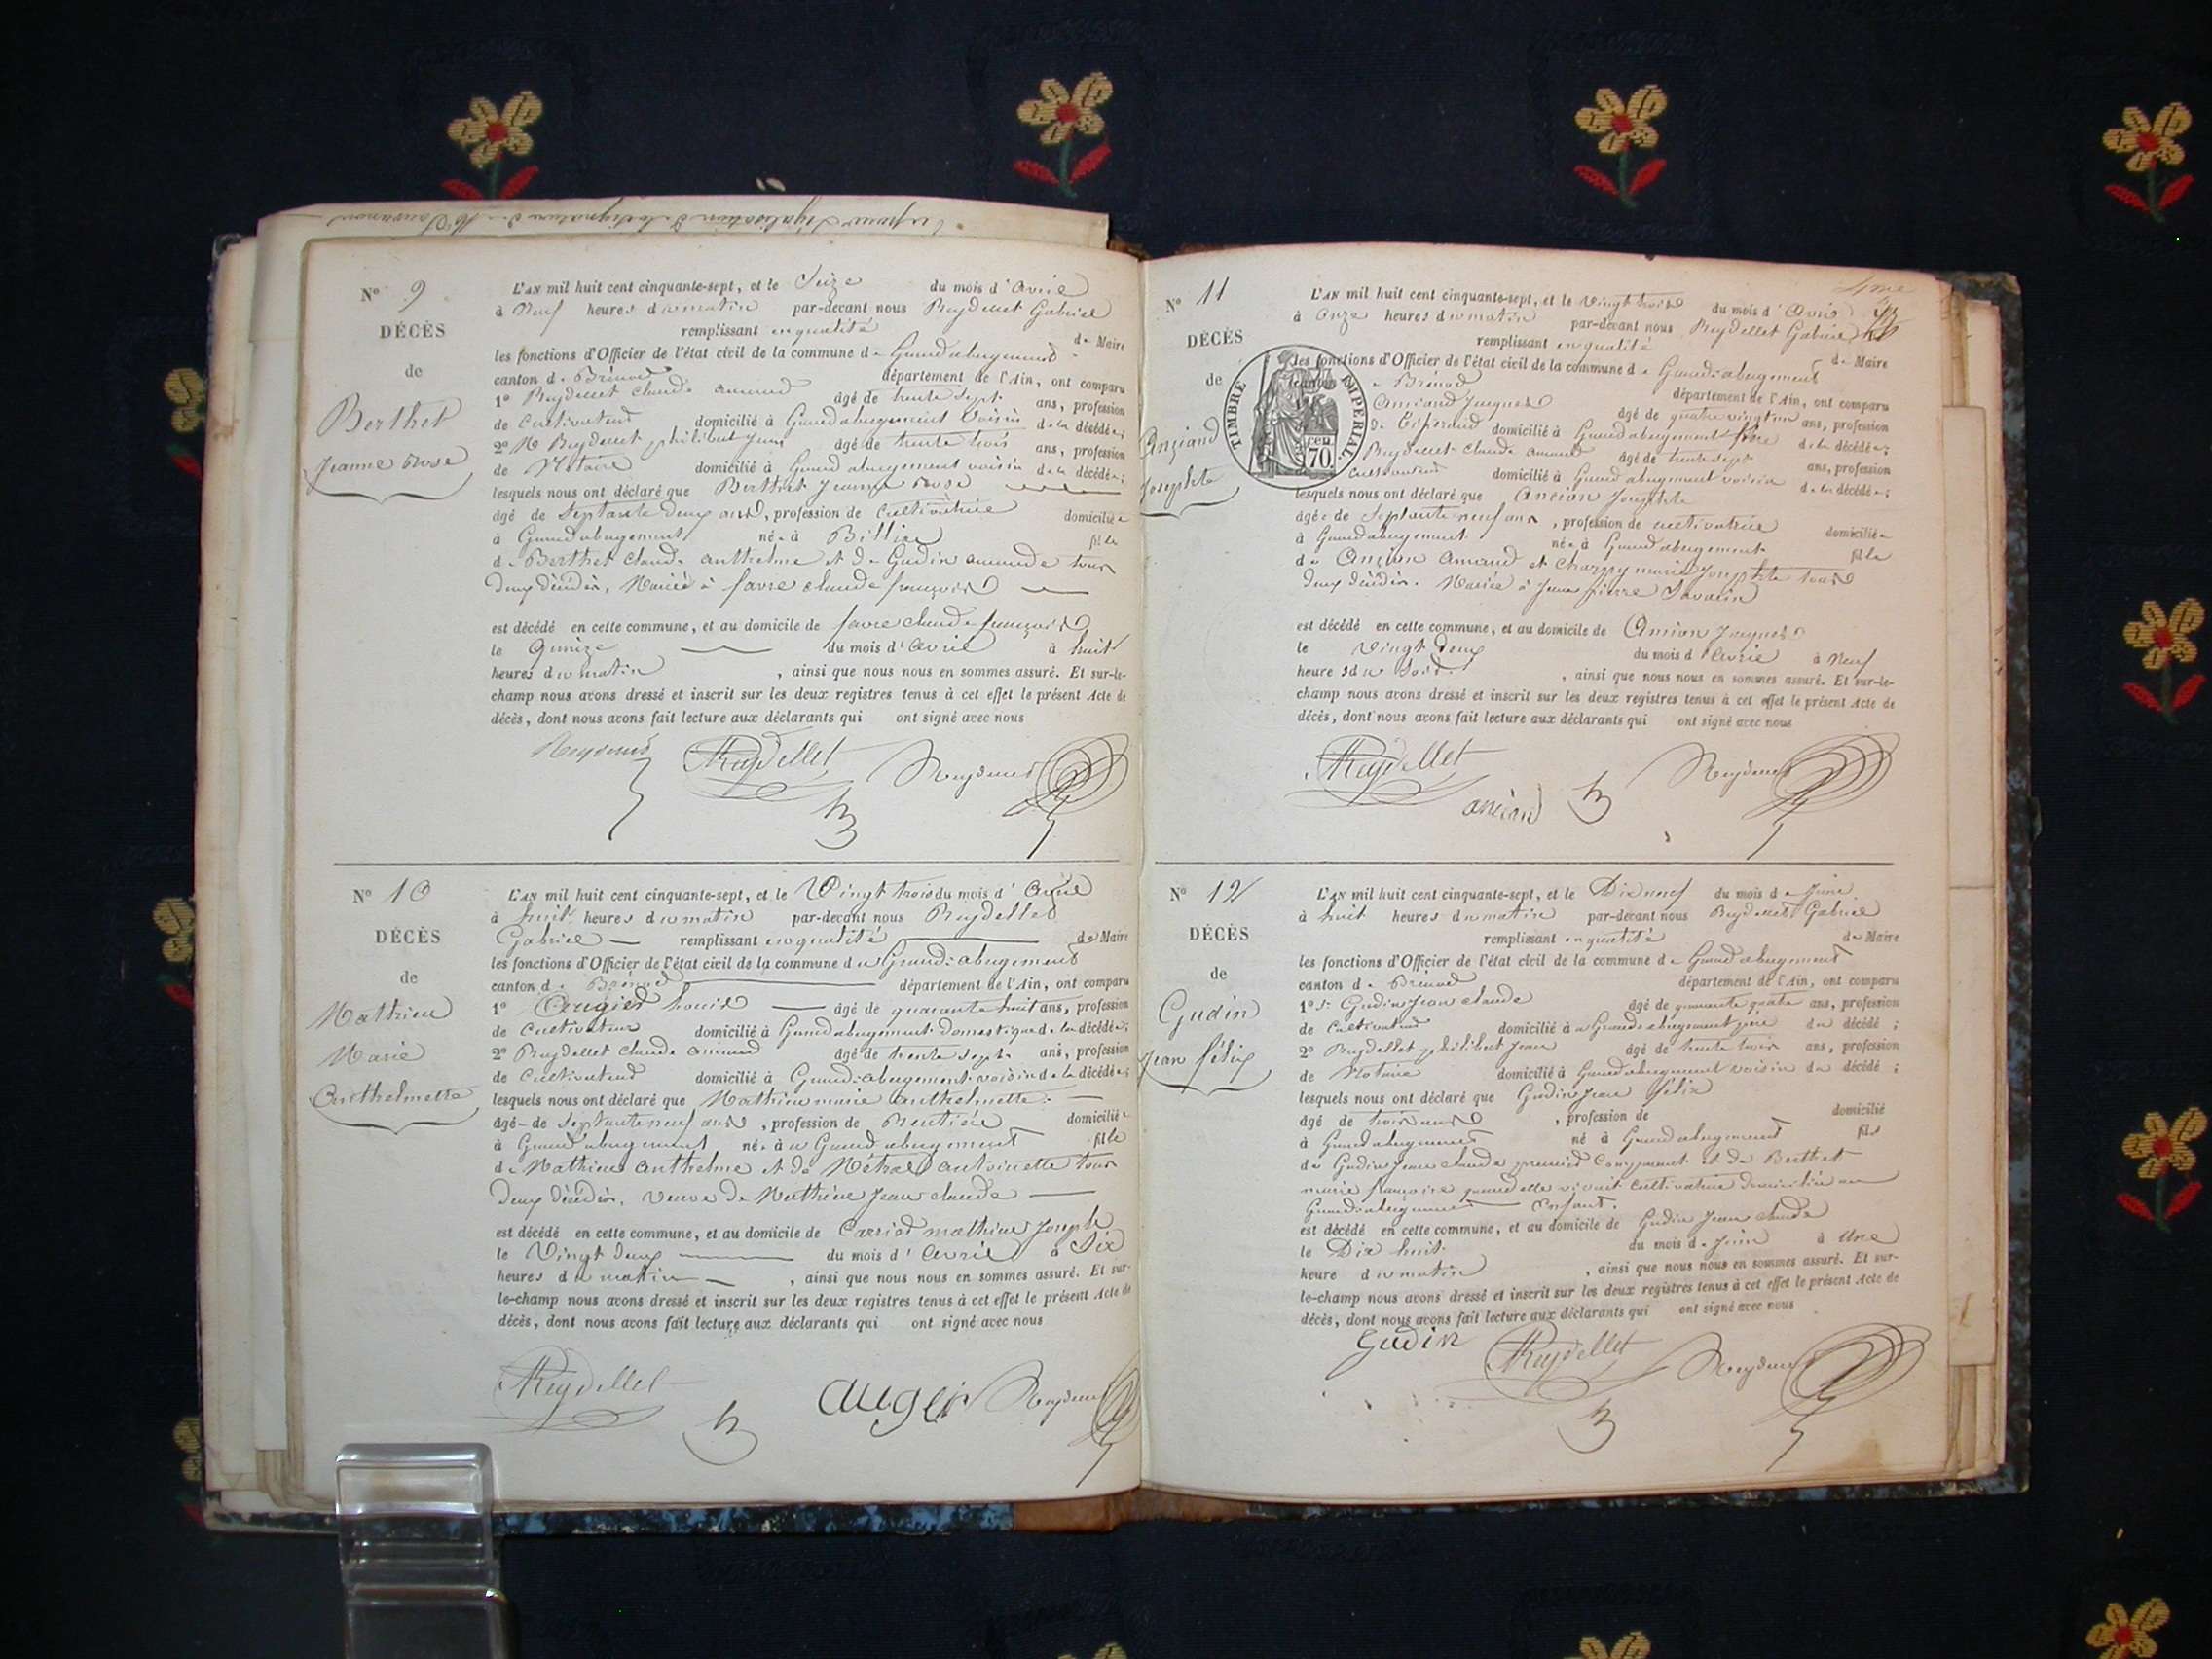 Nº 9
DÉCÈS
de
Berthet
Jeanne Rose
L'AN mil huit cent cinquante-sept, et le Seize du mois d'Avril
à Neuf heures du matin par-devant nous Reydellet Gabriel
remplissant en qualité de Maire
les fonctions d'Officier de l'état civil de la commune de Grand abergement
canton de Brénod département de l'Ain, ont comparu
1º Reydellet Claude amand âgé de trente sept ans, profession
de Cultivateur domicilié à Grand abergement Voisin de la décédée;
2º Me Reydellet philibert Jean âgé de trente trois ans, profession
de Notaire domicilié à Grand abergement voisin de la décédée;
lesquels nous ont déclaré que Berthet Jeanne Rose
âgé de Septante deux ans, profession de Cultivatrice domiciliée
à Grand abergement née à fille
de Berthet Claude Anthelme et de Gudin tous
deux décédés, Mariée à favre claude françois
est décédé en cette commune, et au domicile de favre claude françois
le Quinze du mois d'Avril à huit
heures du matin, ainsi que nous nous en sommes assuré. Et sur-le-
champ nous avons dressé et inscrit sur les deux registres tenus à cet effet le présent Acte de
décès, dont nous avons fait lecture aux déclarants qui ont signé avec nous
Reydellet
Nº 10
DÉCÈS
de
Mathieu
Marie
Anthelmette
L'AN mil huit cent cinquante-sept, et le Vingt trois du mois d'Avril
à huit heures du matin par-devant nous Reydellet
Gabriel remplissant en qualité de Maire
les fonctions d'Officier de l'état civil de la commune de Grand-abergement
canton de Brénod département de l'Ain, ont comparu
1º Louis âgé de quarante huit ans, profession
de Cultivateur domicilié à Grand abergement domestique de la décédée;
2º Reydellet Claude amand âgé de trente sept ans, profession
de Cultivateur domicilié à Grand-abergement voisin de la décédée;
lesquels nous ont déclaré que Mathieu marie anthelmette
âgée de Septante neuf ans, profession de Rentière domiciliée
à Grand abergement née à Grand abergement fille
de Mathieu Anthelme et de Métral Antoinette tous
deux décédés, veuve de Mathieu Jean claude
est décédé en cette commune, et au domicile de Carrier mathieu Joseph
le Vingt deux du mois d'Avril à Six
heures du matin, ainsi que nous nous en sommes assuré. Et sur-
le-champ nous avons dressé et inscrit sur les deux registres tenus à cet effet le présent Acte de
décès, dont nous avons fait lecture aux déclarants qui ont signé avec nous
Reydellet auger
Nº 11
DÉCÈS
de
Anciand
Josephte
TIMBRE IMPÉRIAL
CEN.
70.
L'AN mil huit cent cinquante-sept, et le vingt trois du mois d'Avril
à Onze heures du matin par-devant nous Reydellet Gabriel
remplissant en qualité de Maire
les fonctions d'Officier de l'état civil de la commune de Grand-abergement
canton de Brénod département de l'Ain, ont comparu
Anciand Jacques âgé de quatre vingt un ans, profession
de Tisserand domicilié à Grand abergement frère de la décédée;
Reydellet Claude amand âgé de trente sept ans, profession
Cultivateur domicilié à Grand abergement voisin de la décédée;
lesquels nous ont déclaré que Ancian Josephte
âgée de Septante neuf ans, profession de cultivatrice domiciliée
à Grand abergement née à Grand abergement fille
de Ancian Amand et Charpy marie Josephte tous
deux décédés. Mariée à Jean pierre Savarin
est décédé en cette commune, et au domicile de Ancian Jacques
le Vingt deux du mois d'Avril à Neuf
heures du Soir, ainsi que nous nous en sommes assuré. Et sur-le-
champ nous avons dressé et inscrit sur les deux registres tenus à cet effet le présent Acte de
décès, dont nous avons fait lecture aux déclarants qui ont signé avec nous
Reydellet
anciand
Nº 12
DÉCÈS
de
Gudin
Jean félix
L'AN mil huit cent cinquante-sept, et le Dix neuf du mois de Juin
à huit heures du matin par-devant nous Reydellet Gabriel
remplissant en qualité de Maire
les fonctions d'Officier de l'état civil de la commune de Grand abergement
canton de Brénod département de l'Ain, ont comparu
1º Gudin Jean claude âgé de quarante quatre ans, profession
de Cultivateur domicilié à Grand abergement père du décédé;
2º Reydellet philibert Jean âgé de trente trois ans, profession
de Notaire domicilié à Grand abergement voisin du décédé;
lesquels nous ont déclaré que Gudin Jean félix
âgé de trois ans, profession de domicilié
à Grand abergement né à Grand abergement fils
de Gudin Jean claude premier Comparant et de Berthet
marie françoise quand elle vivait Cultivatrice domiciliée au
Grand abergement Enfant.
est décédé en cette commune, et au domicile de Gudin Jean claude
le Dix huit du mois de Juin à Une
heure du matin, ainsi que nous nous en sommes assuré. Et sur-
le-champ nous avons dressé et inscrit sur les deux registres tenus à cet effet le présent Acte de
décès, dont nous avons fait lecture aux déclarants qui ont signé avec nous
Gudin Reydellet